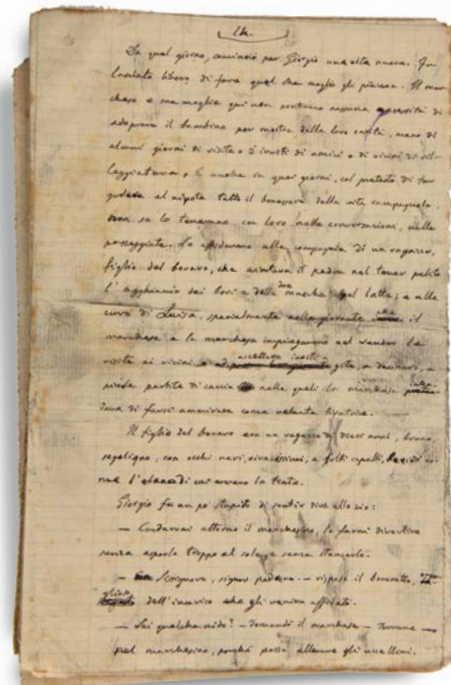 14.
Da quel giorno, cominciò per Giorgio una vita nuova. Fu
lasciato libero di fare quel che meglio gli piaceva. Il mar
chese e sua moglie qui non sentivano nessuna necessità di
adoprare il bambino per mostra della loro carità, meno di
alcuni giorni di visite o d'inviti di amici o di vicini di vil
leggiatura; e anche in quei giorni, col pretesto di far
godere al nipote tutto il benessere della vita campagnola
non se lo tenevano con loro nelle conversazioni, nelle
passeggiate. Lo affidavano alla compagnia di un ragazzo,
figlio del bovaro, che aiutava il padre nel tener pulito
l'agghiaccio dei bovi e delle due mucche del latte; e alle
cure di Luisa, specialmente nelle giornate che il
marchese e la marchesa impiegavano nel render le
visite ai vicini o ad accettare inviti a gite, a desinari, a
piccole partite di caccia nelle quali la marchesa
di farsi ammirare come valente tiratrice.
Il figlio del bovaro era un ragazzo di dieci anni, bruno,
segaligno, con occhi neri, vivacissimi, e folti capelli, co
me l'ebano di cui aveano la tinta.
Giorgio fu un po' stupito di sentir dire allo zio:
— Condurrai attorno il marchesino, lo farai divertire
senza esporlo troppo al sole, e senza stancarlo.
— Sissignore, signor padrone — rispose il
dell'incarico che gli veniva affidato.
— Sai qualche nido? — domandò il marchese — Trovane
pel marchesino, perché possa allevare gli uccellini.